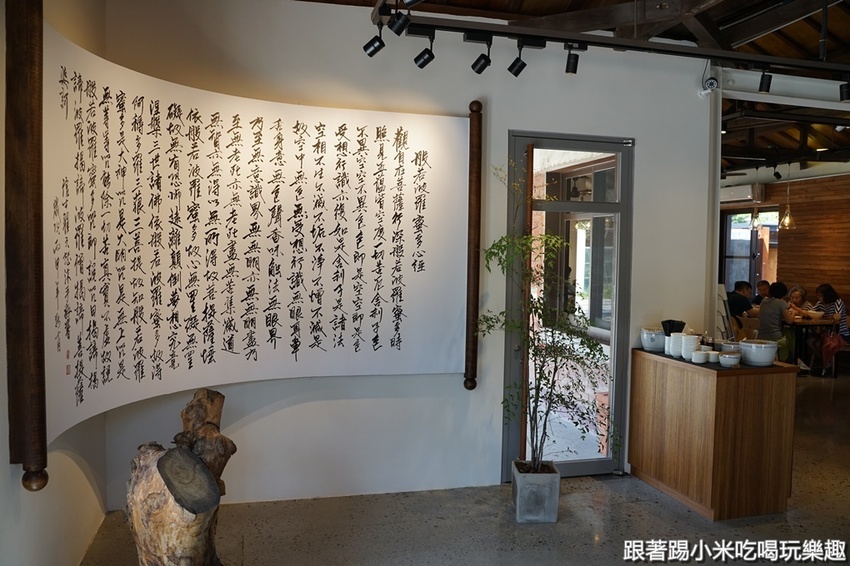 般若波羅蜜多心經
觀自在菩薩行深般若波羅蜜多時
照見五蘊皆空度一切苦厄舍利子色
不異空空不異色色即是空空即是色
受想行識亦復如是舍利子是諸法
空相不生不滅不垢不淨不增不減是
故空中無色無受想行識無眼耳鼻
舌身意無色聲香味觸法無眼界
乃至無意識界無無明亦無無明盡乃
至無老死亦無老死盡無苦集滅道
無智亦無得以無所得故菩提薩埵
依般若波羅蜜多故心無罣礙無罣
礙故無有恐怖遠離顛倒夢想究竟
涅槃三世諸佛依般若波羅蜜多故得
阿耨多羅三藐三菩提故知般若波羅
蜜多是大神咒是大明咒是無上咒是
無等等咒能除一切苦真實不虛故說
般若波羅蜜多咒即說咒曰揭諦揭
諦波羅揭諦波羅僧揭諦菩提薩
婆訶
跟著踢小米吃喝玩樂趣